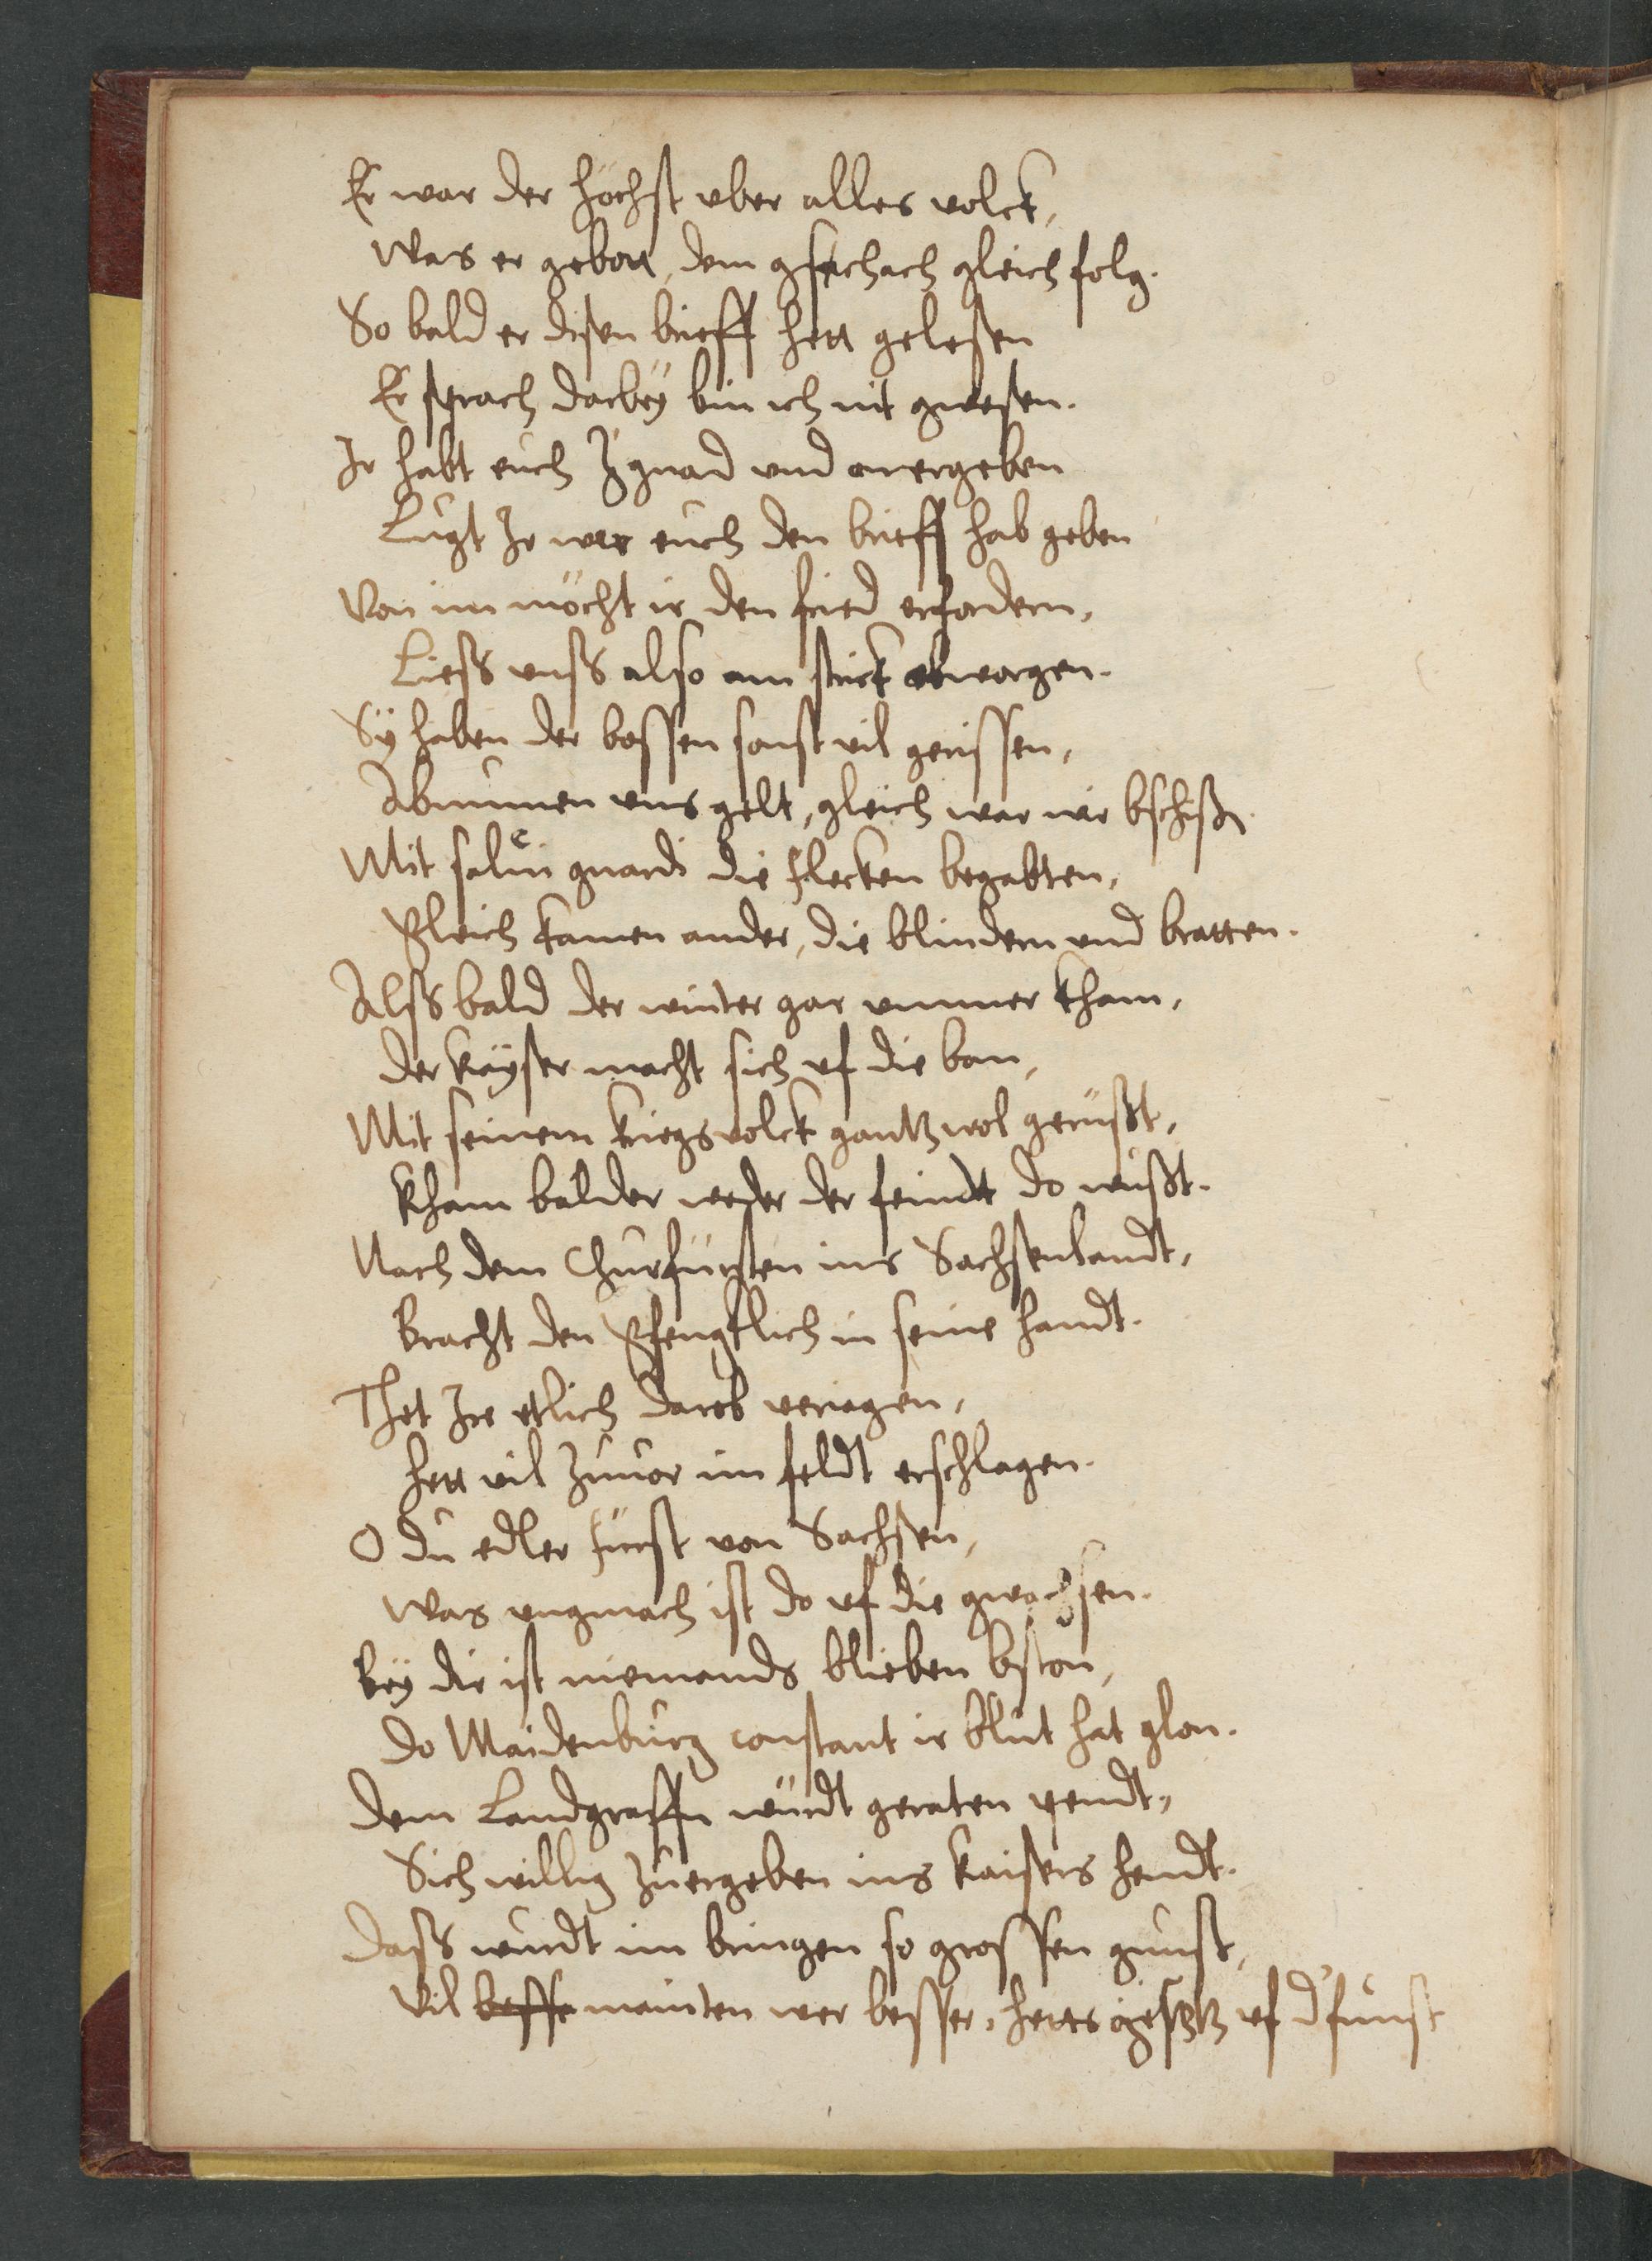 Er war der höchst vber alles volck,
Was er gebott, dem gschach gleich folg.
So bald er disen brieff hett gelesen
Er sprach darbey bin ich nit gwesen.
Ir habt euch Zgnad vnd  ergeben
Lugt Ir wer euch den brieff hab geben
Von im möcht ir den frid erfordern,
Liess vnss also am strick erworgen.
Sÿ haben der bossen sonst vil gerissen,
Abnumen vns gelt, gleich war wir bschissen
Mit salue guardi die flecken begabten,
Gleich kamen ander, die blindern vnd bratten.
Alss bald der winter gar vmmer kham,
Der Kaÿser macht sich vf die ban,
Mit seinem kriegsvolck gantz wol gerüsst,
Kham balder weder der feindt do wusst.
Nach dem Churfürsten ins Sachsenlandt,
Bracht den gfengklich in seine handt.
Thet Ire etlich darob veriagen,
Hett vil zuuor im feldt erschlagen.
O du edler fürst von Sachsen,
Was vngmach ist do vf die gwachsen.
Bey dir ist niemands blieben bston,
Do Maidenburg constant ir blut hat glon.
Dem Landgraffen würdt geraten  
Sich willig zuergeben ins Kaisers hendt.
Dass wurdt im bringen so grossen gunst,
Vil besser mainten wer besser, hetts gsetzt vf d'funst